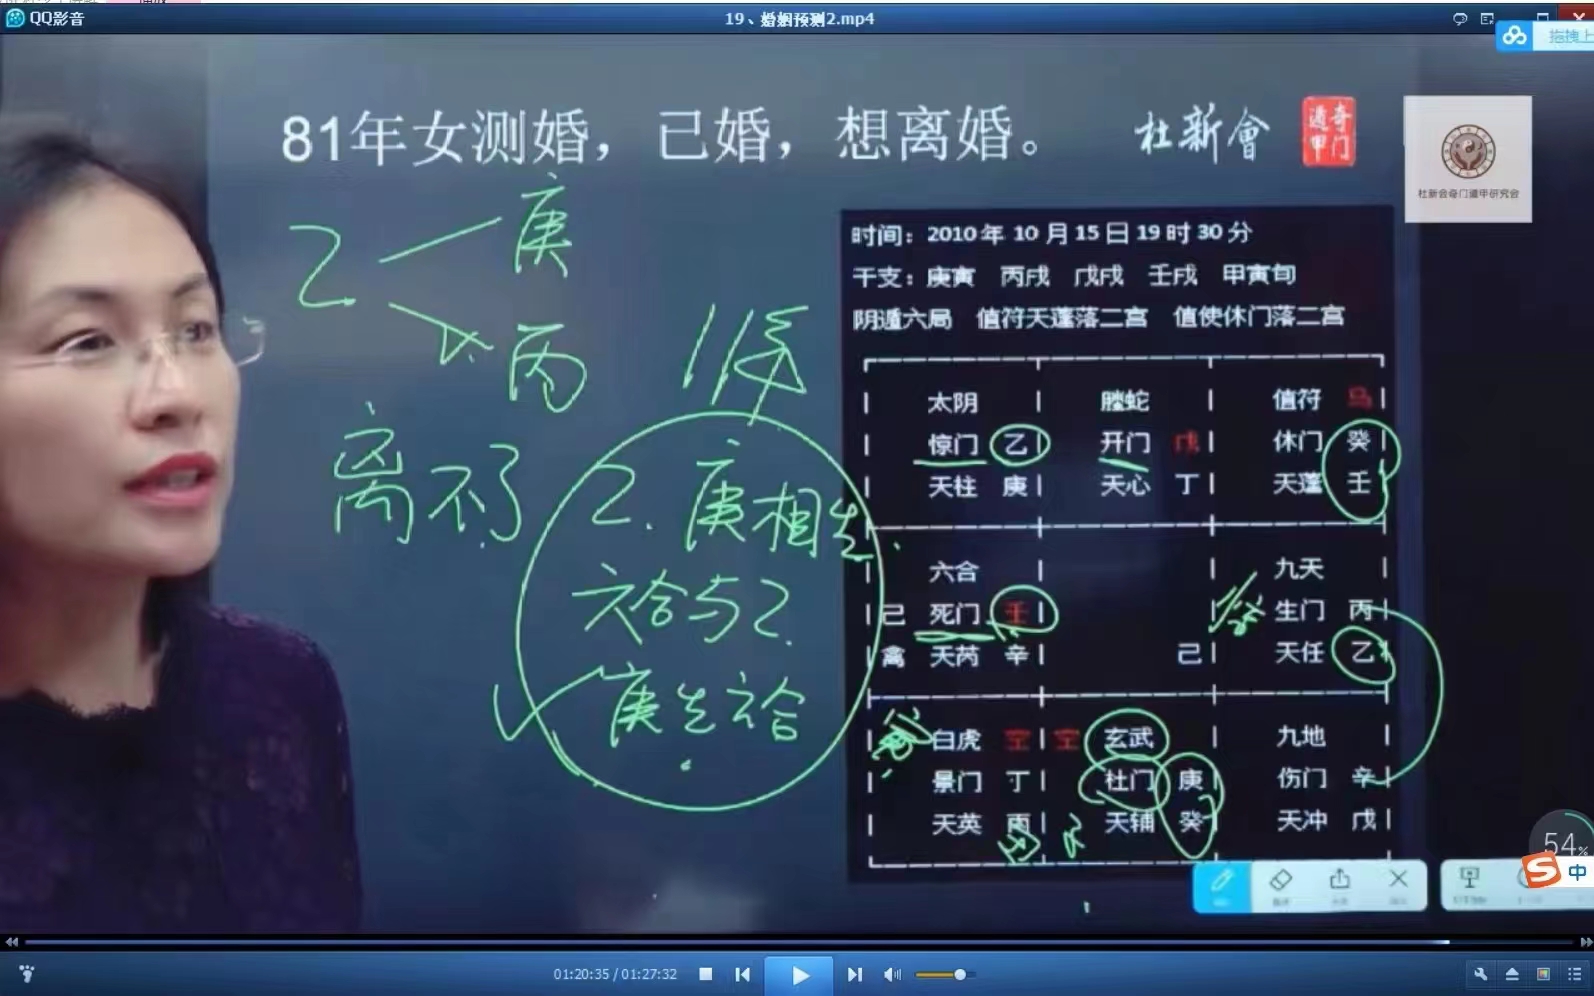 QQ影音
19、婚姻预测2.mp4
拖拽上
81年女测婚，已婚，想离婚。
杜新會
奇门遁甲
杜新会奇门遁甲研究会
时间：2010年10月15日19时30分
干支：庚寅 丙戌 戊戌 壬戌 甲寅旬
阴遁六局 值符天蓬落二宫 值使休门落二宫
太阴 螣蛇 值符 马
惊门 乙 开门 戊 休门 癸
天柱 庚 天心 丁 天蓬 壬
六合 九天
己 死门 壬 生门 丙
禽 天芮 辛 己 天任 乙
白虎 空 空 玄武 九地
景门 丁 杜门 庚 伤门 辛
天英 丙 天辅 癸 天冲 戊
乙 庚
丙
离不了
乙.庚相生
六合与乙.
庚生六合
54%
中
01:20:35 / 01:27:32